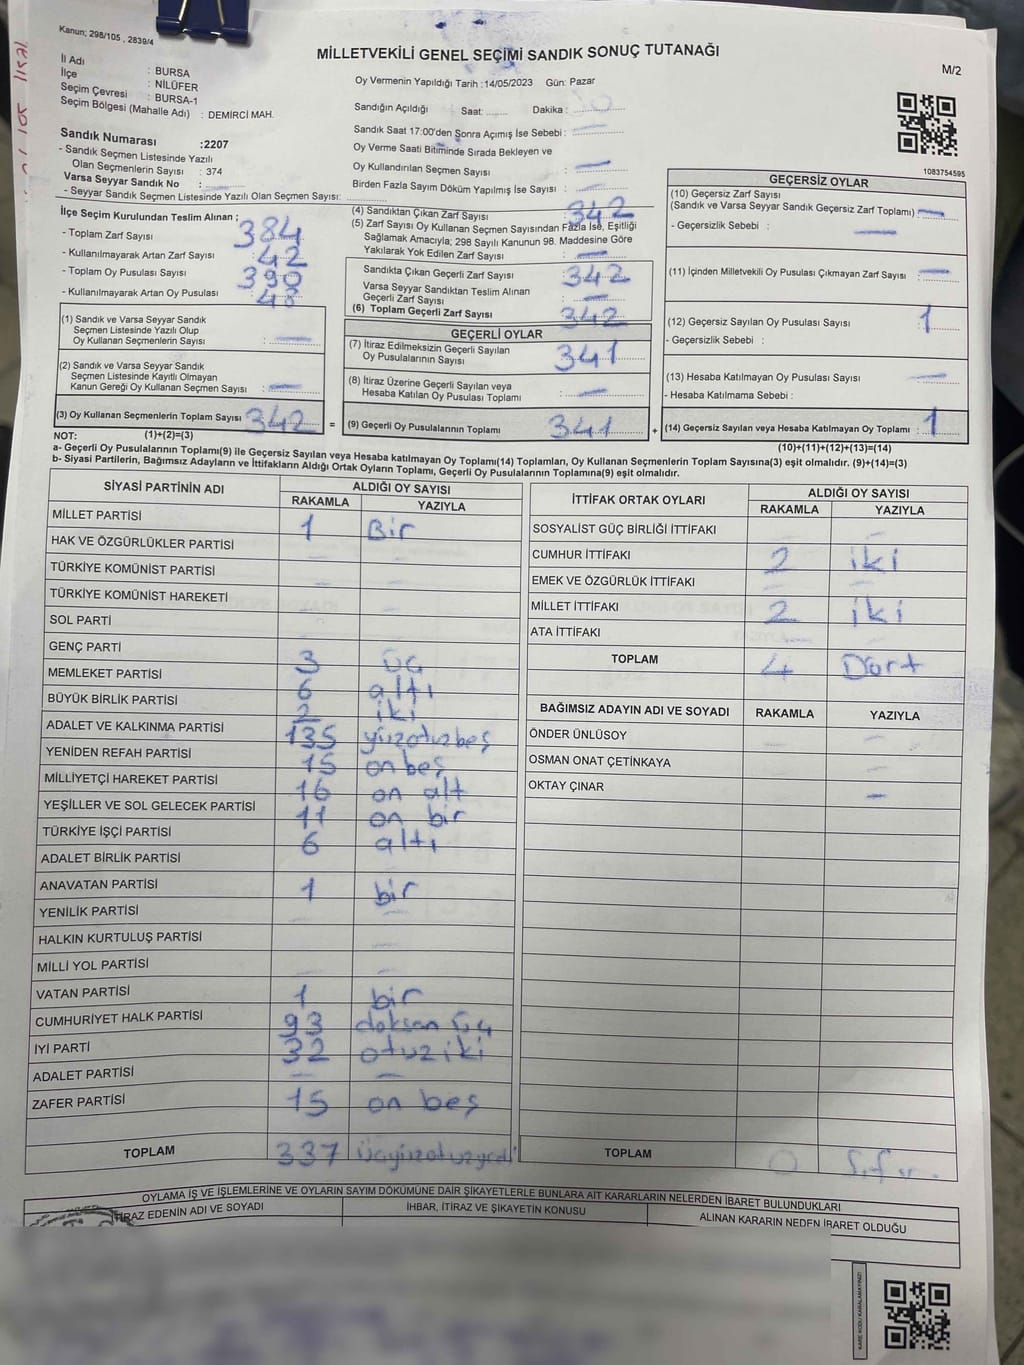 Kanun; 298/105 , 2839/4
MİLLETVEKİLİ GENEL SEÇİMİ SANDIK SONUÇ TUTANAĞI
M/2
İl Adı : BURSA
İlçe : NİLÜFER
Seçim Çevresi : BURSA-1
Seçim Bölgesi (Mahalle Adı) : DEMİRCİ MAH.
Sandık Numarası :2207
- Sandık Seçmen Listesinde Yazılı
Olan Seçmenlerin Sayısı : 374
Varsa Seyyar Sandık No :
- Seyyar Sandık Seçmen Listesinde Yazılı Olan Seçmen Sayısı:
Oy Vermenin Yapıldığı Tarih :14/05/2023 Gün: Pazar
Sandığın Açıldığı Saat: Dakika :
Sandık Saat 17:00'den Sonra Açımış İse Sebebi :
Oy Verme Saati Bitiminde Sırada Bekleyen ve
Oy Kullandırılan Seçmen Sayısı :
Birden Fazla Sayım Döküm Yapılmış İse Sayısı :
1083754595
İlçe Seçim Kurulundan Teslim Alınan ;
- Toplam Zarf Sayısı : 384
- Kullanılmayarak Artan Zarf Sayısı : 42
- Toplam Oy Pusulası Sayısı : 390
- Kullanılmayarak Artan Oy Pusulası : 48
(1) Sandık ve Varsa Seyyar Sandık
Seçmen Listesinde Yazılı Olup
Oy Kullanan Seçmenlerin Sayısı : —
(2) Sandık ve Varsa Seyyar Sandık
Seçmen Listesinde Kayıtlı Olmayan
Kanun Gereği Oy Kullanan Seçmen Sayısı : —
(3) Oy Kullanan Seçmenlerin Toplam Sayısı : 342
(4) Sandıktan Çıkan Zarf Sayısı : 342
(5) Zarf Sayısı Oy Kullanan Seçmen Sayısından Fazla İse, Eşitliği
Sağlamak Amacıyla; 298 Sayılı Kanunun 98. Maddesine Göre
Yakılarak Yok Edilen Zarf Sayısı : —
Sandıkta Çıkan Geçerli Zarf Sayısı : 342
Varsa Seyyar Sandıktan Teslim Alınan
Geçerli Zarf Sayısı : —
(6) Toplam Geçerli Zarf Sayısı : 342
GEÇERLİ OYLAR
(7) İtiraz Edilmeksizin Geçerli Sayılan
Oy Pusulalarının Sayısı : 341
(8) İtiraz Üzerine Geçerli Sayılan veya
Hesaba Katılan Oy Pusulası Toplamı : —
= (9) Geçerli Oy Pusulalarının Toplamı : 341
GEÇERSİZ OYLAR
(10) Geçersiz Zarf Sayısı
(Sandık ve Varsa Seyyar Sandık Geçersiz Zarf Toplamı) : —
- Geçersizlik Sebebi : —
(11) İçinden Milletvekili Oy Pusulası Çıkmayan Zarf Sayısı : —
(12) Geçersiz Sayılan Oy Pusulası Sayısı : 1
- Geçersizlik Sebebi :
(13) Hesaba Katılmayan Oy Pusulası Sayısı : —
- Hesaba Katılmama Sebebi :
+ (14) Geçersiz Sayılan veya Hesaba Katılmayan Oy Toplamı : 1
NOT: (1)+(2)=(3)
(10)+(11)+(12)+(13)=(14)
a- Geçerli Oy Pusulalarının Toplamı(9) ile Geçersiz Sayılan veya Hesaba katılmayan Oy Toplamı(14) Toplamları, Oy Kullanan Seçmenlerin Toplam Sayısına(3) eşit olmalıdır. (9)+(14)=(3)
b- Siyasi Partilerin, Bağımsız Adayların ve İttifakların Aldığı Ortak Oyların Toplamı, Geçerli Oy Pusulalarının Toplamına(9) eşit olmalıdır.
SİYASİ PARTİNİN ADI ALDIĞI OY SAYISI
RAKAMLA YAZIYLA
MİLLET PARTİSİ 1 Bir
HAK VE ÖZGÜRLÜKLER PARTİSİ
TÜRKİYE KOMÜNİST PARTİSİ
TÜRKİYE KOMÜNİST HAREKETİ
SOL PARTİ
GENÇ PARTİ 3 üç
MEMLEKET PARTİSİ 6 altı
BÜYÜK BİRLİK PARTİSİ 2 iki
ADALET VE KALKINMA PARTİSİ 135 yüzotuzbeş
YENİDEN REFAH PARTİSİ 15 on beş
MİLLİYETÇİ HAREKET PARTİSİ 16 on altı
YEŞİLLER VE SOL GELECEK PARTİSİ 11 on bir
TÜRKİYE İŞÇİ PARTİSİ 6 altı
ADALET BİRLİK PARTİSİ
ANAVATAN PARTİSİ 1 bir
YENİLİK PARTİSİ
HALKIN KURTULUŞ PARTİSİ
MİLLİ YOL PARTİSİ
VATAN PARTİSİ 1 bir
CUMHURİYET HALK PARTİSİ 93 doksan üç
İYİ PARTİ 32 otuz iki
ADALET PARTİSİ — —
ZAFER PARTİSİ 15 on beş
TOPLAM 337 üçyüzotuzyedi
İTTİFAK ORTAK OYLARI ALDIĞI OY SAYISI
RAKAMLA YAZIYLA
SOSYALİST GÜÇ BİRLİĞİ İTTİFAKI
CUMHUR İTTİFAKI 2 iki
EMEK VE ÖZGÜRLÜK İTTİFAKI
MİLLET İTTİFAKI 2 iki
ATA İTTİFAKI
TOPLAM 4 Dört
BAĞIMSIZ ADAYIN ADI VE SOYADI RAKAMLA YAZIYLA
ÖNDER ÜNLÜSOY
OSMAN ONAT ÇETİNKAYA
OKTAY ÇINAR —
TOPLAM 0 Sıfır
OYLAMA İŞ VE İŞLEMLERİNE VE OYLARIN SAYIM DÖKÜMÜNE DAİR ŞİKAYETLERLE BUNLARA AİT KARARLARIN NELERDEN İBARET BULUNDUKLARI
İTİRAZ EDENİN ADI VE SOYADI İHBAR, İTİRAZ VE ŞİKAYETİN KONUSU ALINAN KARARIN NEDEN İBARET OLDUĞU
KARE KODU KARALAMAYINIZ!